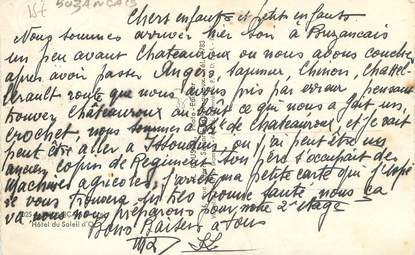 157 BUZANCAIS
Chers enfants et petits enfants
Nous sommes arriver hier soir à Buzancais
un peu avant Chateauroux ou nous avons coucher
après avoir passer Angers, Saumur, Chinon, Chatel-
erault route que nous avons pris par erreur, pensant
trouver Châteauroux au bout ce qui nous a fait un
crochet, nous sommes à de Chateauroux, et je vait
peut être aller à Issoudun ou j'ai peut être un
ancien copin de Regiment son père s'occupait des
Machines agricoles, j'arrete ma petite carte qui j'espè
re vous trouvera tretres bonne santé, nous ça
va nous nous préparons pour notre 2e étage
Bons Baisers à tous
Hôtel du Soleil d'O